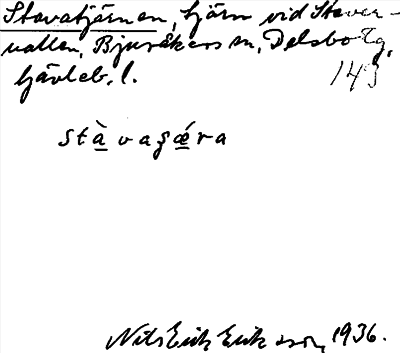 Stavatjärnen, tjärn vid Staver-
vallen, Bjuråkers sn, Delsbo tg,
Gävleb. l. 143
stà̲vaʂǽ̲ra
Nils Erik Eriksson, 1936.